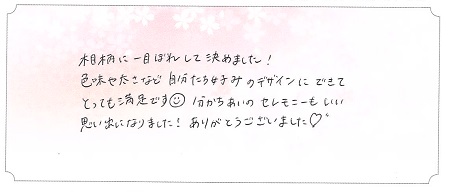 相柄に一目ぼれして決めました！
色味や太さなど自分たち好みのデザインにできて
とっても満足です☺ 分かちあいのセレモニーもいい
思い出になりました！ありがとうございました♡